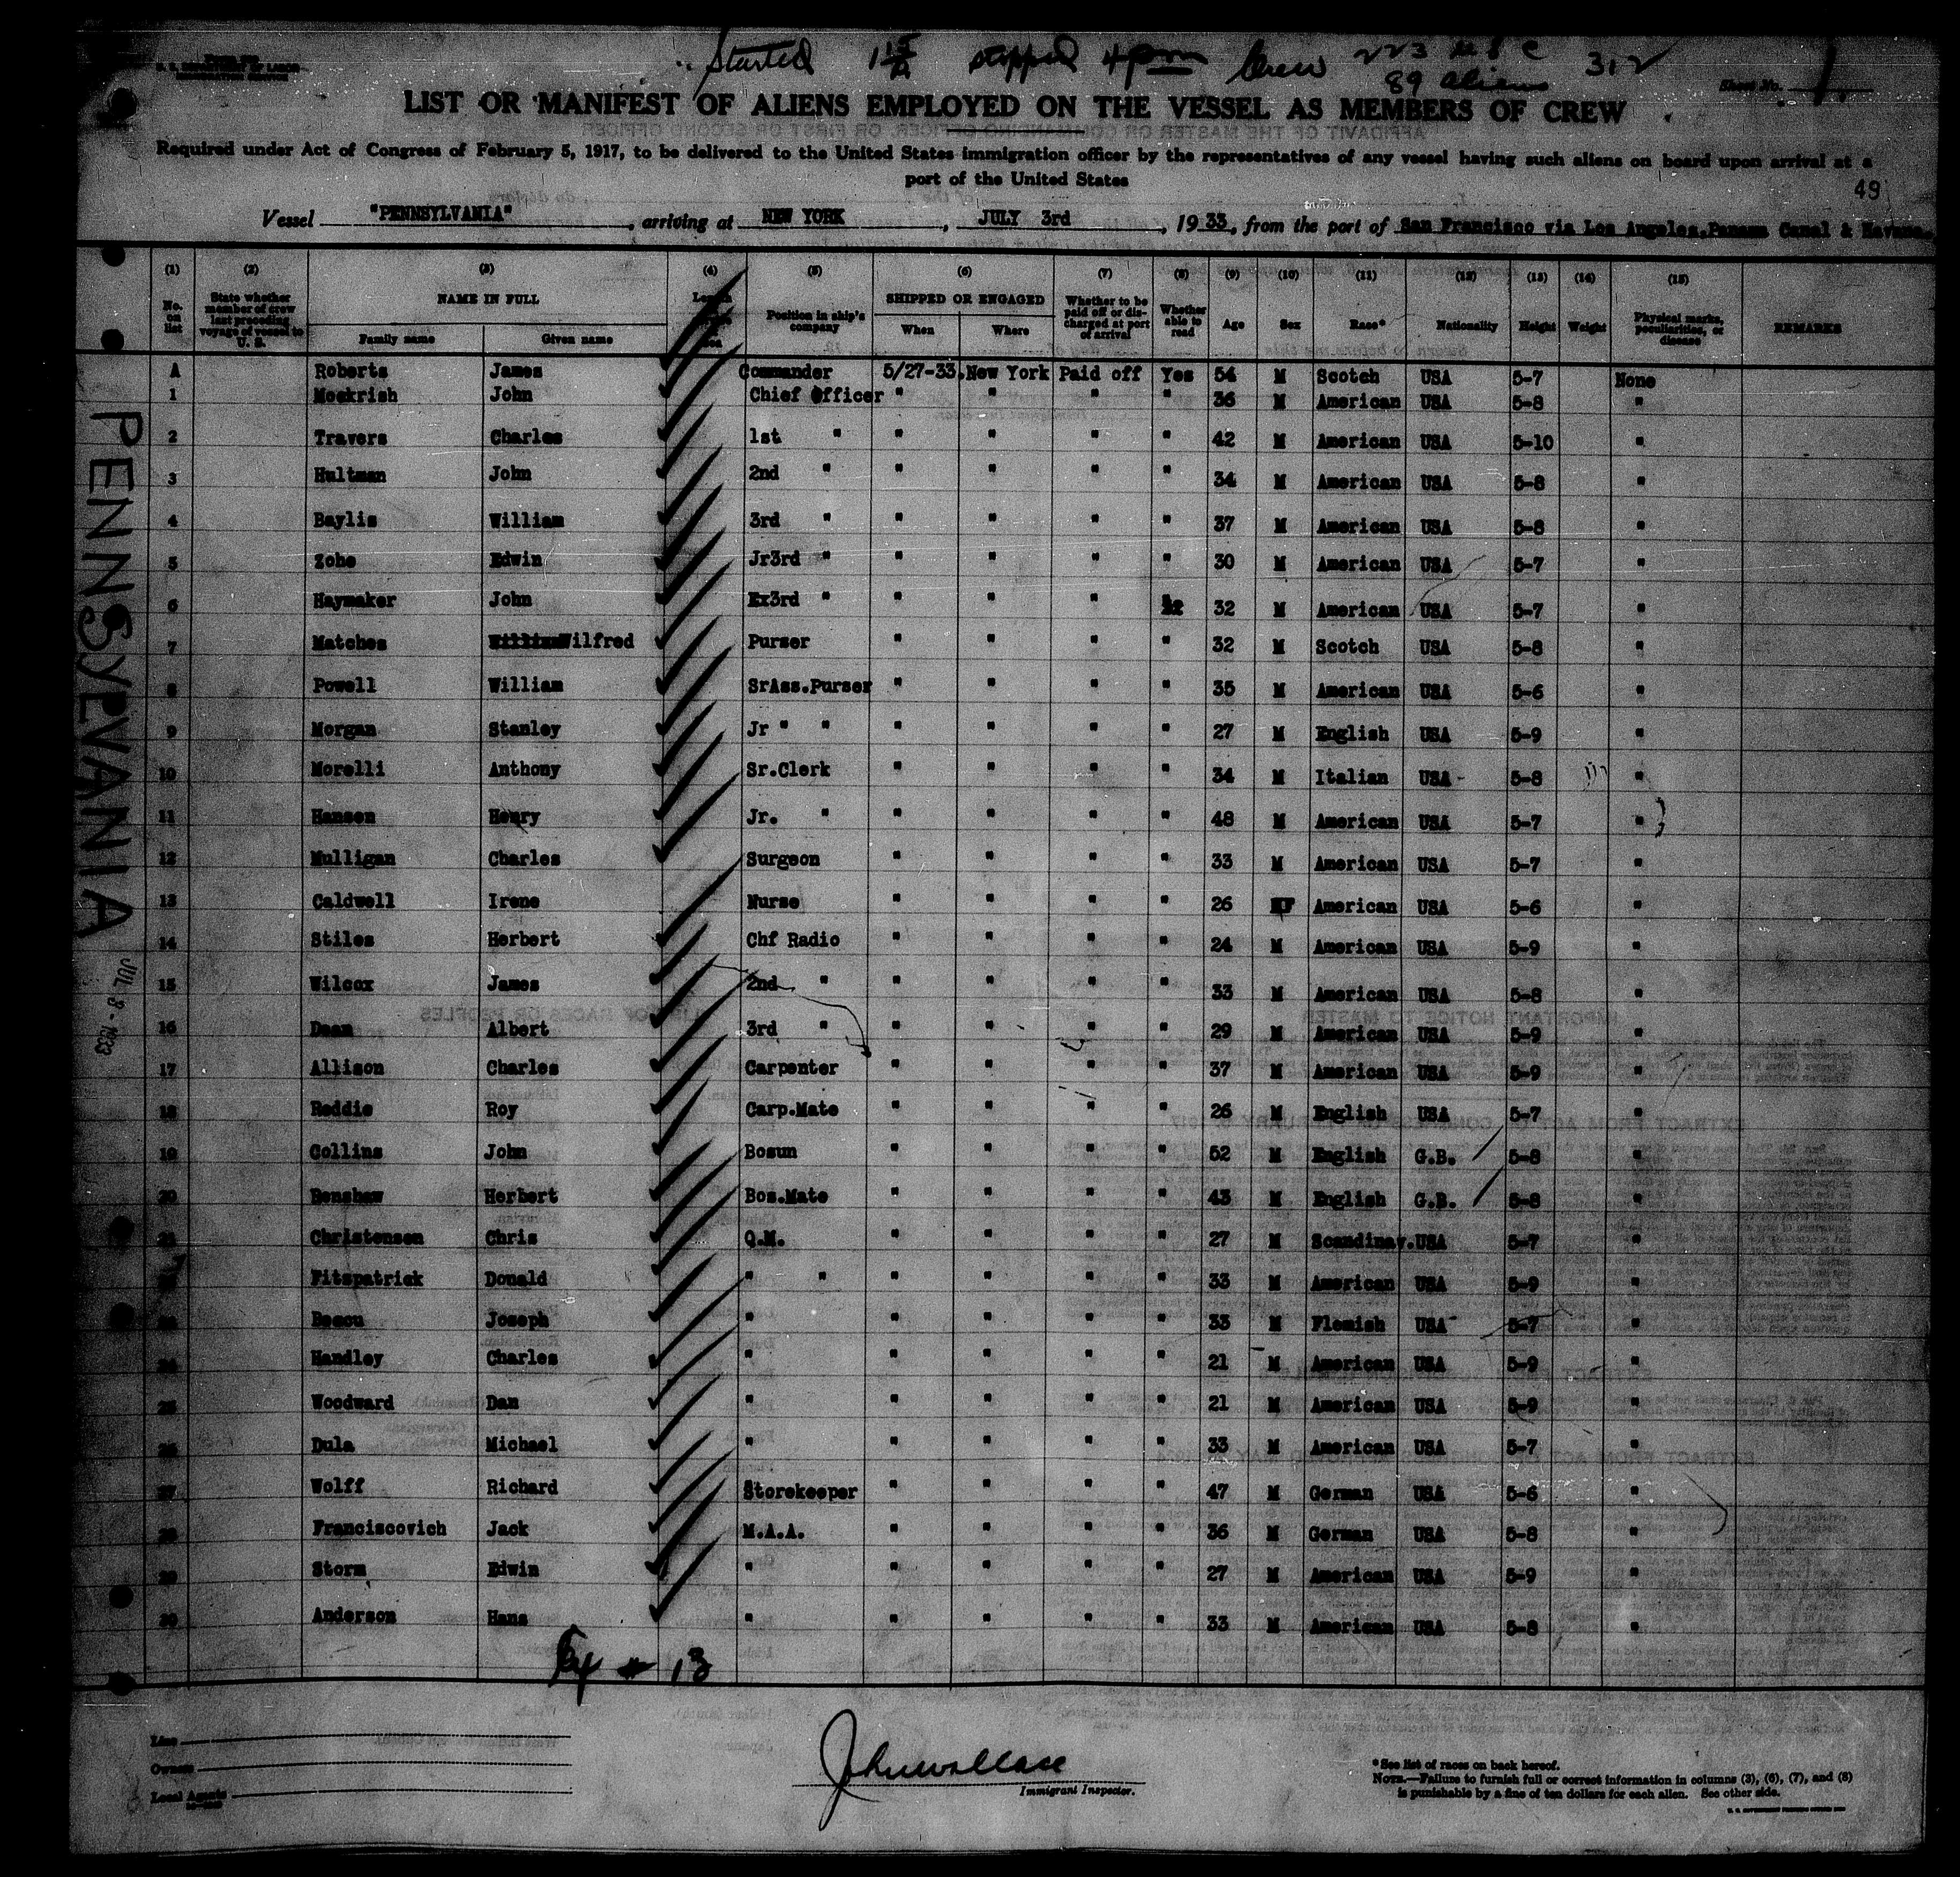 Started 1 15/A stopped 4 pm Crew 223 U S C 312
89 aliens
Sheet No. 1
LIST OR MANIFEST OF ALIENS EMPLOYED ON THE VESSEL AS MEMBERS OF CREW
Required under Act of Congress of February 5, 1917, to be delivered to the United States immigration officer by the representatives of any vessel having such aliens on board upon arrival at a
port of the United States
49
Vessel "PENNSYLVANIA", arriving at NEW YORK, JULY 3rd, 1933, from the port of San Francisco via Los Angeles, Panama Canal & Havana.
(1) (2) (3) (4) (5) (6) (7) (8) (9) (10) (11) (12) (13) (14) (15)
No. on list State whether member of crew last preceding voyage of vessel to U. S. NAME IN FULL Family name Given name Position in ship's company SHIPPED OR ENGAGED When Where Whether to be paid off or discharged at port of arrival Whether able to read Age Sex Race* Nationality Height Weight Physical marks, peculiarities, or disease REMARKS
A Roberts James Commander 5/27-33. New York Paid off Yes 54 M Scotch USA 5-7 None
1 Mockrish John Chief Officer " " " " 36 M American USA 5-8 "
2 Travers Charles 1st " " " " " 42 M American USA 5-10 "
3 Hultman John 2nd " " " " " 34 M American USA 5-8 "
4 Baylis William 3rd " " " " " 37 M American USA 5-8 "
5 Zohe Edwin Jr3rd " " " " " 30 M American USA 5-7 "
6 Haymaker John Ex3rd " " " " 32 M American USA 5-7 "
7 Matches Wilfred Purser " " " " 32 M Scotch USA 5-8 "
8 Powell William SrAss.Purser " " " " 35 M American USA 5-6 "
9 Morgan Stanley Jr " " " " " " 27 M English USA 5-9 "
10 Morelli Anthony Sr.Clerk " " " " 34 M Italian USA 5-8 "
11 Hansen Henry Jr. " " " " " 48 M American USA 5-7 "
12 Mulligan Charles Surgeon " " " " 33 M American USA 5-7 "
13 Caldwell Irene Nurse " " " " 26 F American USA 5-6 "
14 Stiles Herbert Chf Radio " " " " 24 M American USA 5-9 "
15 Wilcox James 2nd " " " " " 33 M American USA 5-8 "
16 Dean Albert 3rd " " " " " 29 M American USA 5-9 "
17 Allison Charles Carpenter " " " " 37 M American USA 5-9 "
18 Reddie Roy Carp.Mate " " " " 26 M English USA 5-7 "
19 Collins John Bosun " " " " 52 M English G.B. 5-8 "
20 Renshaw Herbert Bos.Mate " " " " 43 M English G.B. 5-8 "
21 Christensen Chris Q.M. " " " " 27 M Scandinav. USA 5-7 "
22 Fitzpatrick Donald " " " " " " 33 M American USA 5-9 "
23 Joseph " " " " " 33 M Flemish USA 5-7 "
24 Handley Charles " " " " " 21 M American USA 5-9 "
25 Woodward Dan " " " " " 21 M American USA 5-9 "
26 Dula Michael " " " " " 33 M American USA 5-7 "
27 Wolff Richard Storekeeper " " " " 47 M German USA 5-6 "
28 Franciscovich Jack M.A.A. " " " " 36 M German USA 5-8 "
29 Storm Edwin " " " " " 27 M American USA 5-9 "
30 Anderson Hans " " " " " 33 M American USA 5-8 "
# 13
PENNSYLVANIA
JUL 3 - 1933
Line
Owners
Local Agents
John Wallace
Immigrant Inspector.
*See list of races on back hereof.
NOTE.—Failure to furnish full or correct information in columns (3), (6), (7), and (8)
is punishable by a fine of ten dollars for each alien. See other side.